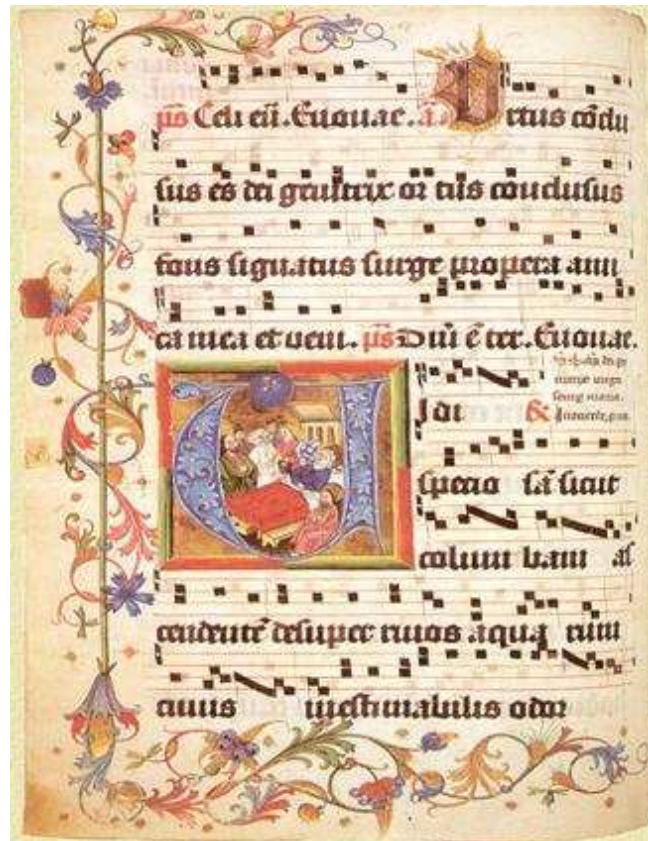 ps Celi eiꝰ. Euouae. a. Ortus cōclu
sus es dei genitrix or tus conclusus
fons signatus surge propera ami
ca mea et veni. ps Dn̄i ē ter. Euouae.
Vi di
speciosā sicut
colum bam as
cendentē desuper riuos aquaꝝ cuiu
cuius inestimabilis odor